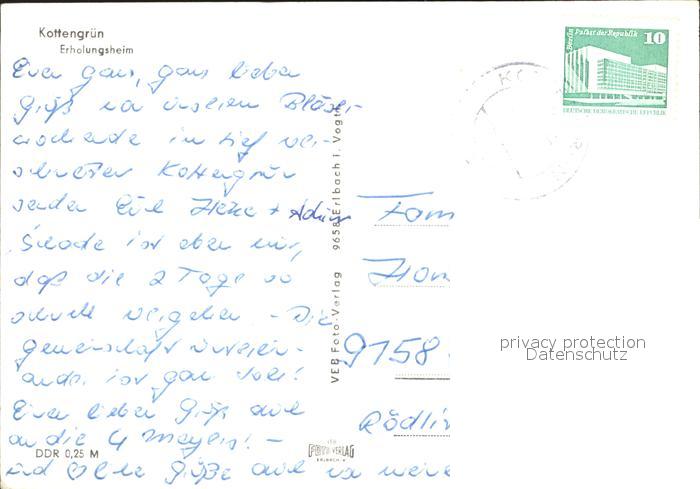 Kottengrün
Erholungsheim
Einen ganz, ganz lieben
Gruß von unserem Bläser-
wochenende im tief ver-
schneiten Kottengrün
senden Eure +
Schade ist aber nur,
daß die 2 Tage so
schnell vergehen. - Die
Gemeinschaft untereinan-
ander ist ganz toll!
Einen lieben Gruß auch
an die 4 Meyers! -
und Grüße auch von
DDR 0,25 M
VEB Foto-Verlag 9658 Erlbach i. Vogtl.
FOTO VERLAG
ERLBACH V.
Berlin Palast der Republik
10
DEUTSCHE DEMOKRATISCHE REPUBLIK
KO
Fam
9158
Rödli
privacy protection
Datenschutz